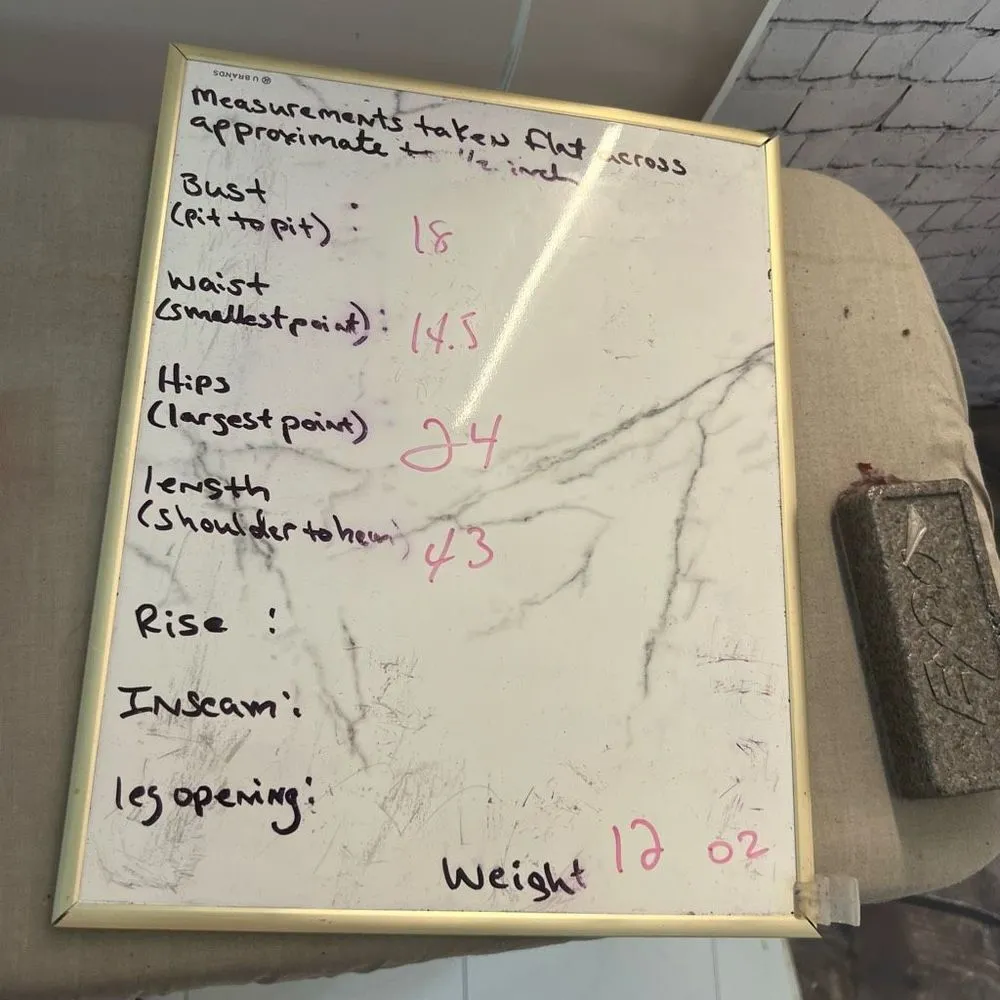 U BRANDS
Measurements taken flat across
approximate + 1/2 inch
Bust
(pit to pit) : 18
Waist
(smallest point) : 14.5
Hips
(largest point) 24
length
(shoulder to hem) 43
Rise :
Inseam :
leg opening :
Weight 12 oz
EXPO